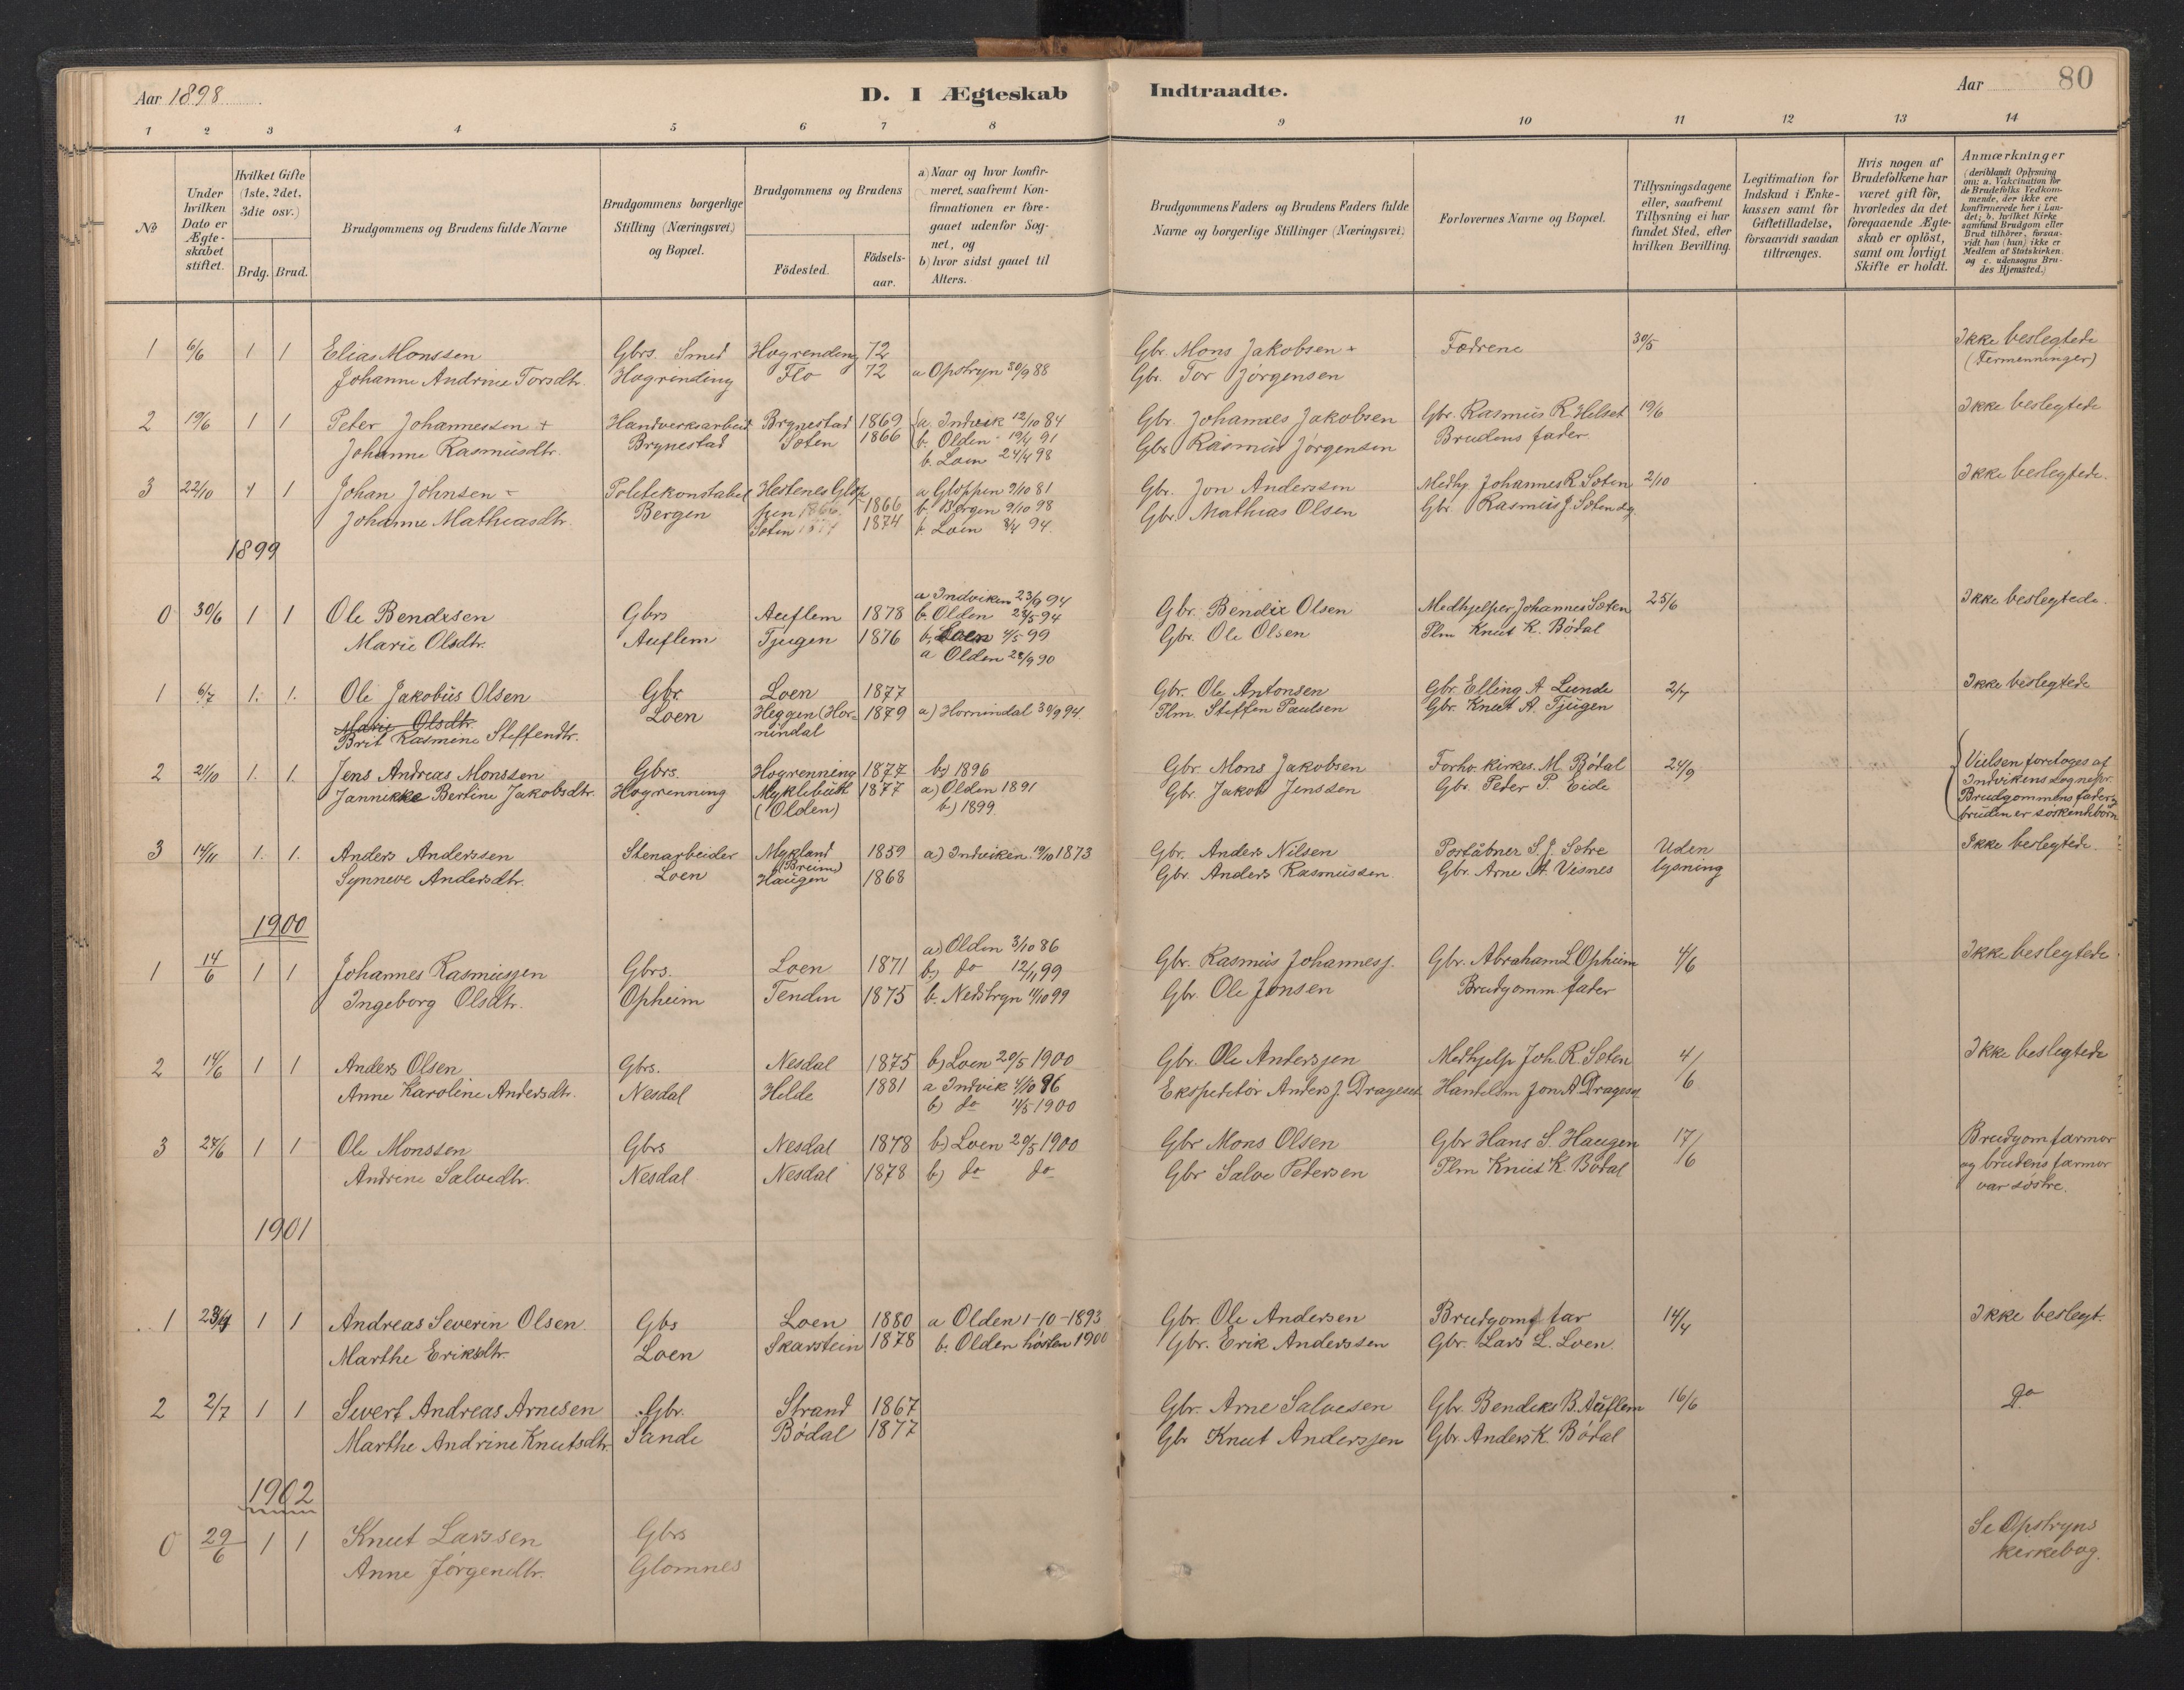 Aar 1898
D. I Ægteskab Indtraadte.
Aar 80
1 2 3 4 5 6 7 8 9 10 11 12 13 14
№
Under hvilken Dato er Ægteskabet stiftet.
Hvilket Gifte (1ste, 2det, 3die osv.)
Brdg. Brud.
Brudgommens og Brudens fulde Navne
Brudgommens borgerlige Stilling (Næringsvei) og Bopæl.
Brudgommens og Brudens
Födested.
Födselsaar.
a) Naar og hvor konfirmeret, saafremt Konfirmationen er foregaaet udenfor Sognet, og
b) hvor sidst gaaet til Alters.
Brudgommens Faders og Brudens Faders fulde Navne og borgerlige Stillinger (Næringsvei)
Forlovernes Navne og Bopæl.
Tillysningsdagene eller, saafremt Tillysning ei har fundet Sted, efter hvilken Bevilling.
Legitimation for Indskud i Enkekassen samt for Giftetilladelse, forsaavidt saadan tiltrænges.
Hvis nogen af Brudefolkene har været gift för, hvorledes da det foregaaende Ægteskab er oplöst, samt om lovligt Skifte er holdt.
Anmærkninger (deriblandt Oplysning om: a. Vakcination for de Brudefolks Vedkommende, der ikke ere konfirmerede her i Landet; b. hvilket Kirkesamfund Brudgom eller Brud tilhörer, forsaavidt han (hun) ikke er Medlem af Statskirken. og c. udensogns Brudes Hjemsted.)
1 6/6 1 1 Elias Monssen Gbrs. Smed Hogrending 72 Gbr. Mons Jakobsen + Fædrene 30/5 Ikke beslegtede
Johanne Andrine Torsdtr. Hogrinding Flo 72 a Opstryn 30/9 88 Gbr. Tor Jørgensen (Fermenninger)
2 19/6 1 1 Peter Johannessen + Handverksarbeid Brynestad 1869 a. Indvik 12/10 84 Gbr. Johannes Jakobsen Gbr. Rasmus R. Helset 19/6 Ikke beslegtede
Johanne Rasmusdtr. Brynestad Sæten 1866 b. Olden 19/4 91 Gbr. Rasmus Jørgensen Brudens fader
b. Loen 24/4 98
3 22/10 1 1 Johan Johnsen Politikonstabel Hestenes Glop a Gloppen 9/10 81 Gbr. Jon Anderssen Medhj Johannes R. Sæten 2/10 Ikke beslegtede.
Johanne Mathiasdtr. Bergen pen 1866 1866 b. Bergen 9/10 98 Gbr. Mathias Olsen Gbr. Rasmus J. Sæten
Sæten 1874 b. Loen 3/4 94.
1899
0 30/6 1 1 Ole Bendixsen Gbrs Auflem 1878 a Indviken 23/9 94 Gbr. Bendix Olsen Medhjelper Johannes Sæten 25/6 Ikke beslegtede.
b. Olden 28/5 94
Marie Olsdtr. Auflem Tjugen 1876 b, Loen 4/5 99 Gbr. Ole Olsen Plm Knut K. Bødal
a Olden 28/9 90
1 6/7 1. 1. Ole Jakobus Olsen Gbr Loen 1877 Gbr. Ole Antonsen Gbr. Elling A Lunde 2/7 Ikke beslegtede
Marie Olsdtr. Loen Heggen (Hor- 1879 a) Hornindal 30/9 94. Plm. Steffen Paulsen Gbr. Knut A. Tjugen
Brit Rasmine Steffendtr. nindal
2 21/10 1. 1. Jens Andreas Monssen Gbrs. Hogrenning 1877 b) 1896 Gbr. Mons Jakobsen Forhv. kirkes. M. Bødal 24/9 Vielsen foretoges af
Jannikke Bertine Jakobsdtr. Hogrenning Myklebust 1877 a) Olden 1891 Gbr. Jakob Jenssen Gbr. Peter P. Eide Indvikens sognepr.
(Olden) b) 1899. Brudgommens fader &
bruden er søskenbørn
3 14/11 1. 1. Anders Anderssen Stenarbeider Mykland 1859 a) Indviken 19/10 1873 Gbr. Anders Nilsen Postaabner S. J. Sætre Uden Ikke beslegtede.
(Breim)
Synneve Andersdtr. Loen Haugen 1868 Gbr. Anders Rasmussen. Gbr. Arne A. Visnes lysning
1900
a) Olden 3/10 86
1 14/6 1 1 Johannes Rasmussen Gbrs. Loen 1871 b) do 12/11 99 Gbr. Rasmus Johannesj. Gbr. Abraham L Opheim 4/6 Ikke beslegtede
Ingeborg Olsdtr. Opheim Tenden 1875 b. Nedstryn 11/10 99 Gbr. Ole Jonsen Brudgomm. fader
2 14/6 1 1 Anders Olsen Gbrs. Nesdal 1875 b) Loen 20/5 1900 Gbr. Ole Anderssen Medhjelp Joh. R. Sæten 4/6 Ikke beslegtede
Anne Karoline Andersdtr. Nesdal Hilde 1881 a Indvik 4/10 96 Ekspeditør Anders J. Drageset Handelsm Jon A Drageset
b) do 11/5 1900
3 24/6 1 1 Ole Monssen Gbrs Nesdal 1878 b) Loen 20/5 1900 Gbr Mons Olsen Gbr Hans S. Haugen 17/6 Brudgom farmor
Andrine Salvedtr. Nesdal Nesdal 1878 b) do do Gbr Salve Petersen Plm Knut K Bødal og brudens farmor
var søstre.
1901
1 23/4 1 1 Andreas Severin Olsen. Gbs Loen 1880 a Olden 1-10-1893 Gbr. Ole Andersen Brudgoms far 14/4 Ikke beslegt.
Marthe Eriksdtr. Loen Skarstein 1878 b. Olden høsten 1900 Gbr. Erik Anderssen Gbr. Lars L. Loen.
2 2/7 1 1 Sivert Andreas Arnesen Gbr. Strand 1867 Gbr. Arne Salvesen Gbr. Bendiks B. Auflem 16/6 Do
Marthe Andrine Knutsdtr. Sande Bødal 1877 Gbr Knut Anderssen Gbr. Anders K. Bødal
1902
0 29/6 1 1 Knut Larssen Gbrs Se Opstryns
Anne Jørgendtr. Glomnes kirkebog.